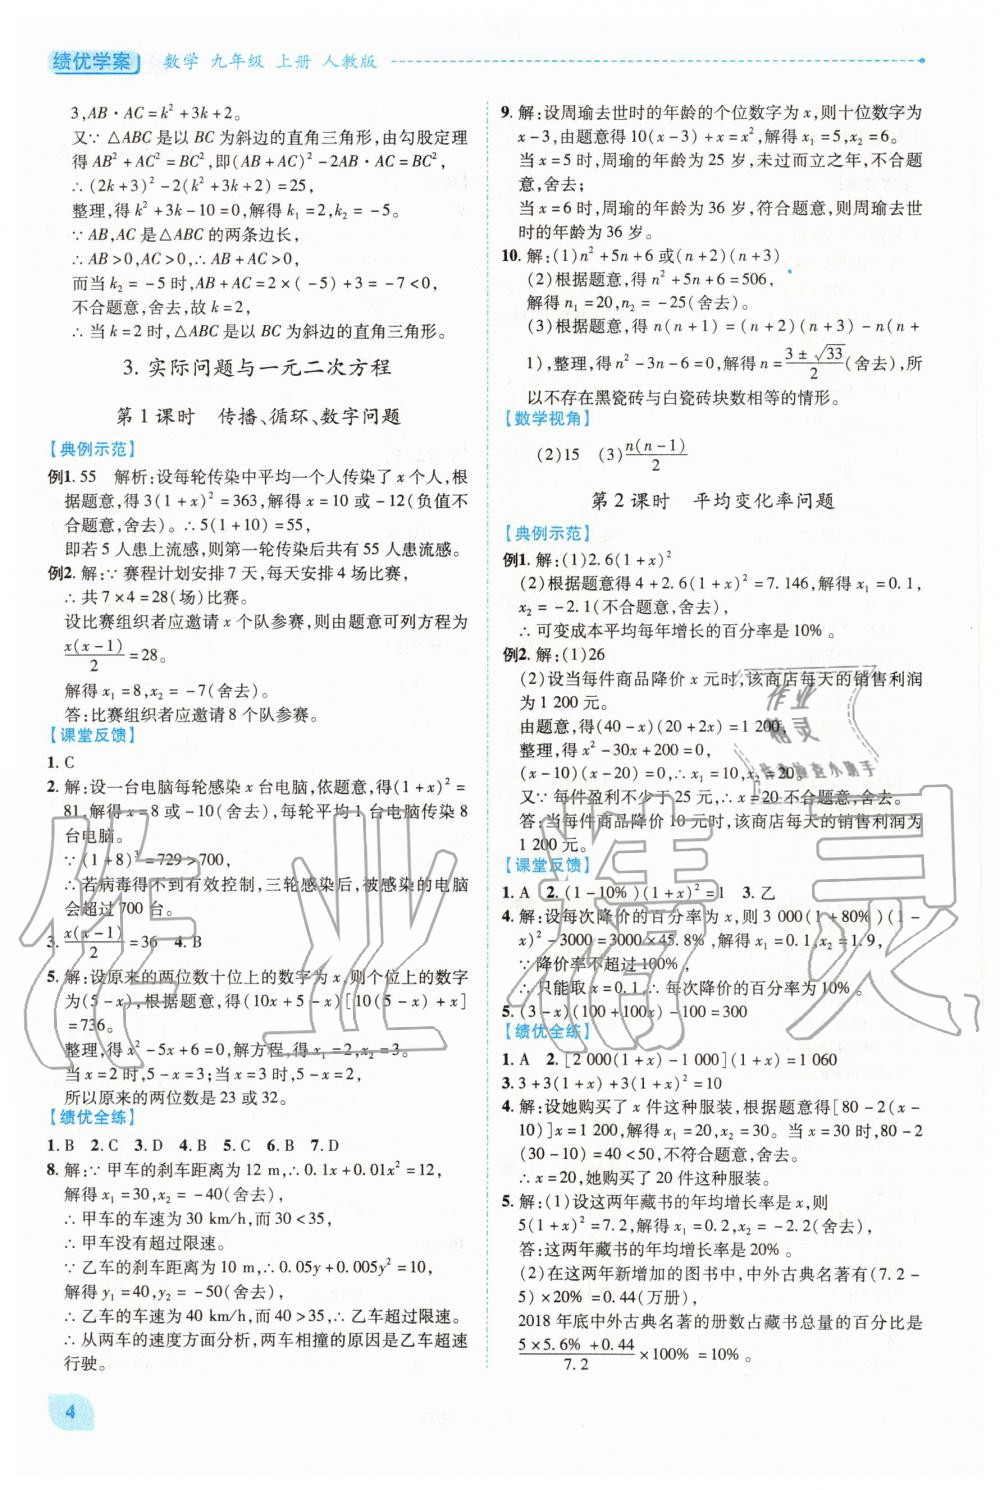 绩优学案 数学 九年级 上册 人教版
3,AB·AC=k²+3k+2。
又∵△ABC是以BC为斜边的直角三角形,由勾股定理
得AB²+AC²=BC²,即(AB+AC)²-2AB·AC=BC²,
∴(2k+3)²-2(k²+3k+2)=25,
整理,得k²+3k-10=0,解得k₁=2,k₂=-5。
∵AB,AC是△ABC的两条边长,
∴AB>0,AC>0,∴AB+AC>0,
而当k₂=-5时,AB+AC=2×(-5)+3=-7<0,
不合题意,舍去,故k=2,
∴当k=2时,△ABC是以BC为斜边的直角三角形。
3. 实际问题与一元二次方程
第1课时 传播、循环、数字问题
【典例示范】
例1. 55 解析:设每轮传染中平均一个人传染了x个人,根
据题意,得3(1+x)²=363,解得x=10或-12(负值不
合题意,舍去)。∴5(1+10)=55,
即若5人患上流感,则第一轮传染后共有55人患流感。
例2. 解:∵赛程计划安排7天,每天安排4场比赛,
∴共7×4=28(场)比赛。
设比赛组织者应邀请x个队参赛,则由题意可列方程为
x(x-1)/2=28。
解得x₁=8,x₂=-7(舍去)。
答:比赛组织者应邀请8个队参赛。
【课堂反馈】
1. C
2. 解:设一台电脑每轮感染x台电脑,依题意,得(1+x)²=
81,解得x=8或-10(舍去),每轮平均1台电脑传染8
台电脑。
∵(1+8)³=729>700,
∴若病毒得不到有效控制,三轮感染后,被感染的电脑
会超过700台。
3. x(x-1)/2=36 4. B
5. 解:设原来的两位数十位上的数字为x,则个位上的数字
为(5-x),根据题意,得(10x+5-x)[10(5-x)+x]
=736。
整理,得x²-5x+6=0,解方程,得x₁=2,x₂=3。
当x=2时,5-x=3;当x=3时,5-x=2。
所以原来的两位数是23或32。
【绩优全练】
1. B 2. C 3. D 4. B 5. C 6. B 7. D
8. 解:∵甲车的刹车距离为12 m,∴0.1x+0.01x²=12,
解得x₁=30,x₂=-40(舍去),
∴甲车的车速为30 km/h,而30<35,
∴甲车没有超过限速。
∵乙车的刹车距离为10 m,∴0.05y+0.005y²=10,
解得y₁=40,y₂=-50(舍去),
∴乙车的车速为40 km/h,而40>35,∴乙车超过限速。
∴从两车的速度方面分析,两车相撞的原因是乙车超速
行驶。
4
9. 解:设周瑜去世时的年龄的个位数字为x,则十位数字为
x-3,由题意得10(x-3)+x=x²,解得x₁=5,x₂=6。
当x=5时,周瑜的年龄为25岁,未过而立之年,不合
题意,舍去;
当x=6时,周瑜的年龄为36岁,符合题意,则周瑜去世
时的年龄为36岁。
10. 解:(1)n²+5n+6或(n+2)(n+3)
(2)根据题意,得n²+5n+6=506,
解得n₁=20,n₂=-25(舍去)。
(3)根据题意,得n(n+1)=(n+2)(n+3)-n(n+
1),整理,得n²-3n-6=0,解得n=(3±√33)/2(舍去),所
以不存在黑瓷砖与白瓷砖块数相等的情形。
【数学视角】
(2)15 (3)n(n-1)/2
第2课时 平均变化率问题
【典例示范】
例1. 解:(1)2.6(1+x)²
(2)根据题意得4+2.6(1+x)²=7.146,解得x₁=0.1,
x₂=-2.1(不合题意,舍去)。
∴可变成本平均每年增长的百分率是10%。
例2. 解:(1)26
(2)设当每件商品降价x元时,该商店每天的销售利润
为1 200元。
由题意,得(40-x)(20+2x)=1 200,
整理,得x²-30x+200=0,
(x-10)(x-20)=0,∴x₁=10,x₂=20。
又∵每件盈利不少于25元,∴x=20不合题意,舍去。
答:当每件商品降价10元时,该商店每天的销售利润为
1 200元。
【课堂反馈】
1. A 2. (1-10%)(1+x)²=1 3. 乙
4. 解:设每次降价的百分率为x,则3 000(1+80%)(1-
x)²-3000=3000×45.8%,解得x₁=0.1,x₂=1.9,
∵降价率不超过100%,
∴只能取x=0.1,∴每次降价的百分率为10%。
5. (3-x)(100+100x)-100=300
【绩优全练】
1. A 2. [2 000(1+x)-1 000](1+x)=1 060
3. 3+3(1+x)+3(1+x)²=10
4. 解:设她购买了x件这种服装,根据题意得[80-2(x-
10)]x=1 200,解得x₁=20,x₂=30。当x=30时,80-2
(30-10)=40<50,不符合题意,舍去。
∴x=20,∴她购买了20件这种服装。
5. 解:(1)设这两年藏书的年均增长率是x,则
5(1+x)²=7.2,解得x₁=0.2,x₂=-2.2(舍去),
答:这两年藏书的年均增长率是20%。
(2)在这两年新增加的图书中,中外古典名著有(7.2-
5)×20%=0.44(万册),
2018年底中外古典名著的册数占藏书总量的百分比是
(5×5.6%+0.44)/7.2×100%=10%。
作业精灵
作业
精灵
作业检查小助手